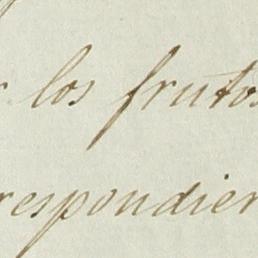 r los frutos
respondier